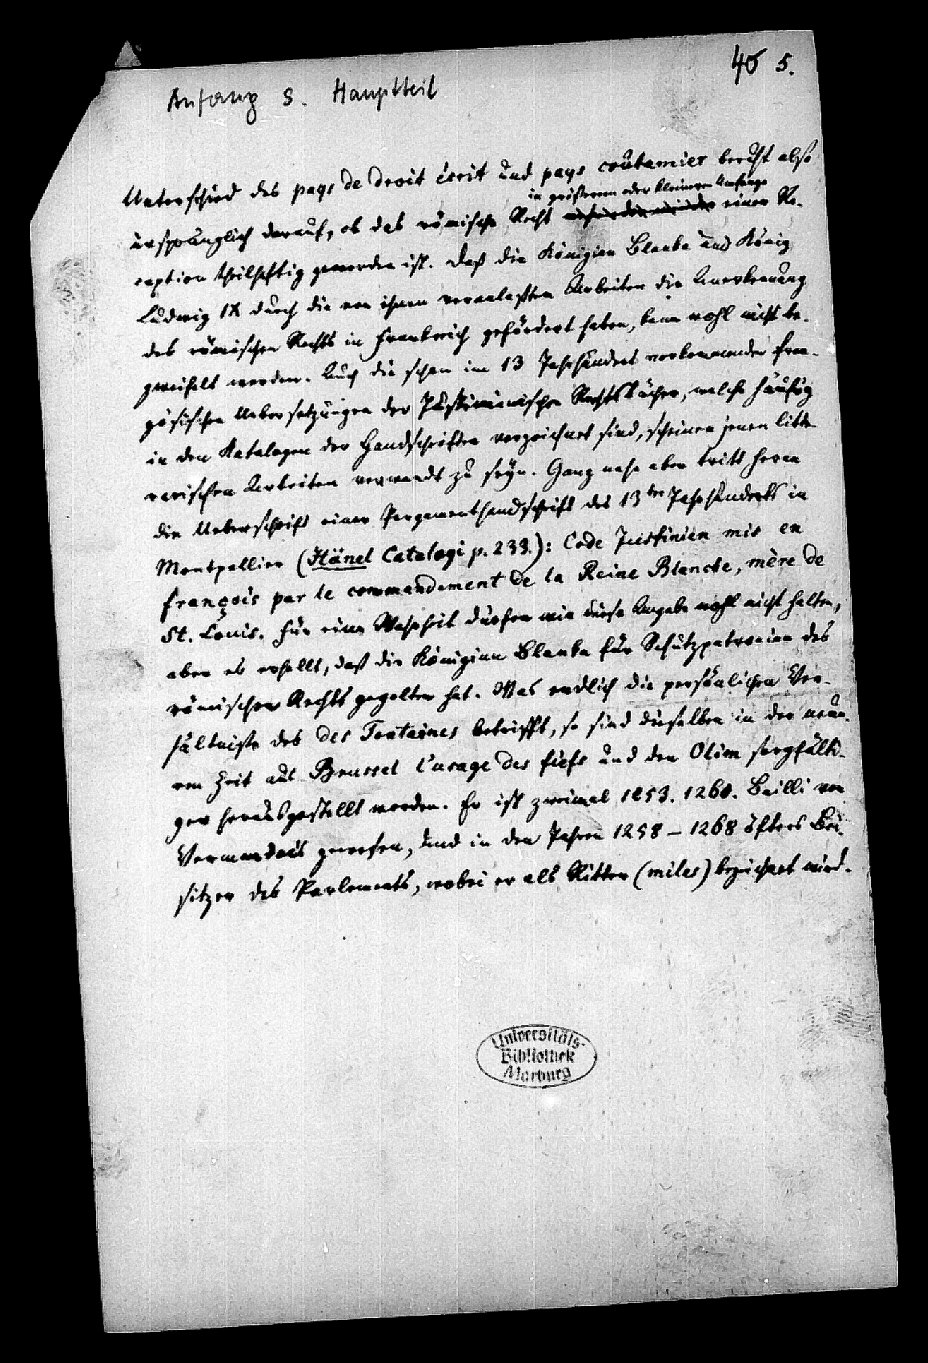 40 5.
Anfang s. Hauptteil
Unterschied des pays de droit écrit und pays coutumier beruht also
in größerem oder kleinerem Umfange
ursprünglich darauf, ob das römische Recht einer Re-
ception theilhaftig geworden ist. Daß die Königinn Blanka und König
Ludwig IX durch die von ihnen veranlaßten Arbeiten die Anerkennung
des römischen Rechts in Frankreich gefördert haben, kann wohl nicht be-
zweifelt werden. Auch die schon im 13 Jahrhundert vorkommenden fran-
zösischen Uebersetzungen der Justinianischen Rechtsbücher, welche häufig
in den Katalogen der Handschriften verzeichnet sind, scheinen jenen litte-
rarischen Arbeiten verwandt zu seyn. Ganz nahe aber tritt heran
die Ueberschrift einer Pergamenthandschrift des 13ten Jahrhunderts in
Montpellier (Hänel Catalogi p. 233.): Code Justinien mis en
françois par le commandement de la Reine Blanche, mère de
St. Louis. Für eine Wahrheit dürfen wir diese Angabe wohl nicht halten,
aber es erhellt, daß die Königinn Blanka für Schutzpatroninn des
römischen Rechts gegolten hat. Was endlich die persönlichen Ver-
hältnisse des des Fontaines betrifft, so sind dieselben in der neue-
ren Zeit aus Brussel l'usage des fiefs und den Olim sorgfälti-
ger herausgestellt worden. Er ist zweimal 1253. 1260. Bailli von
Vermandois gewesen, und in den Jahren 1258 – 1268 öfters Bei-
sitzer des Parlements, wobei er als Ritter (miles) bezeichnet wird.
Universitäts-
Bibliothek
Marburg